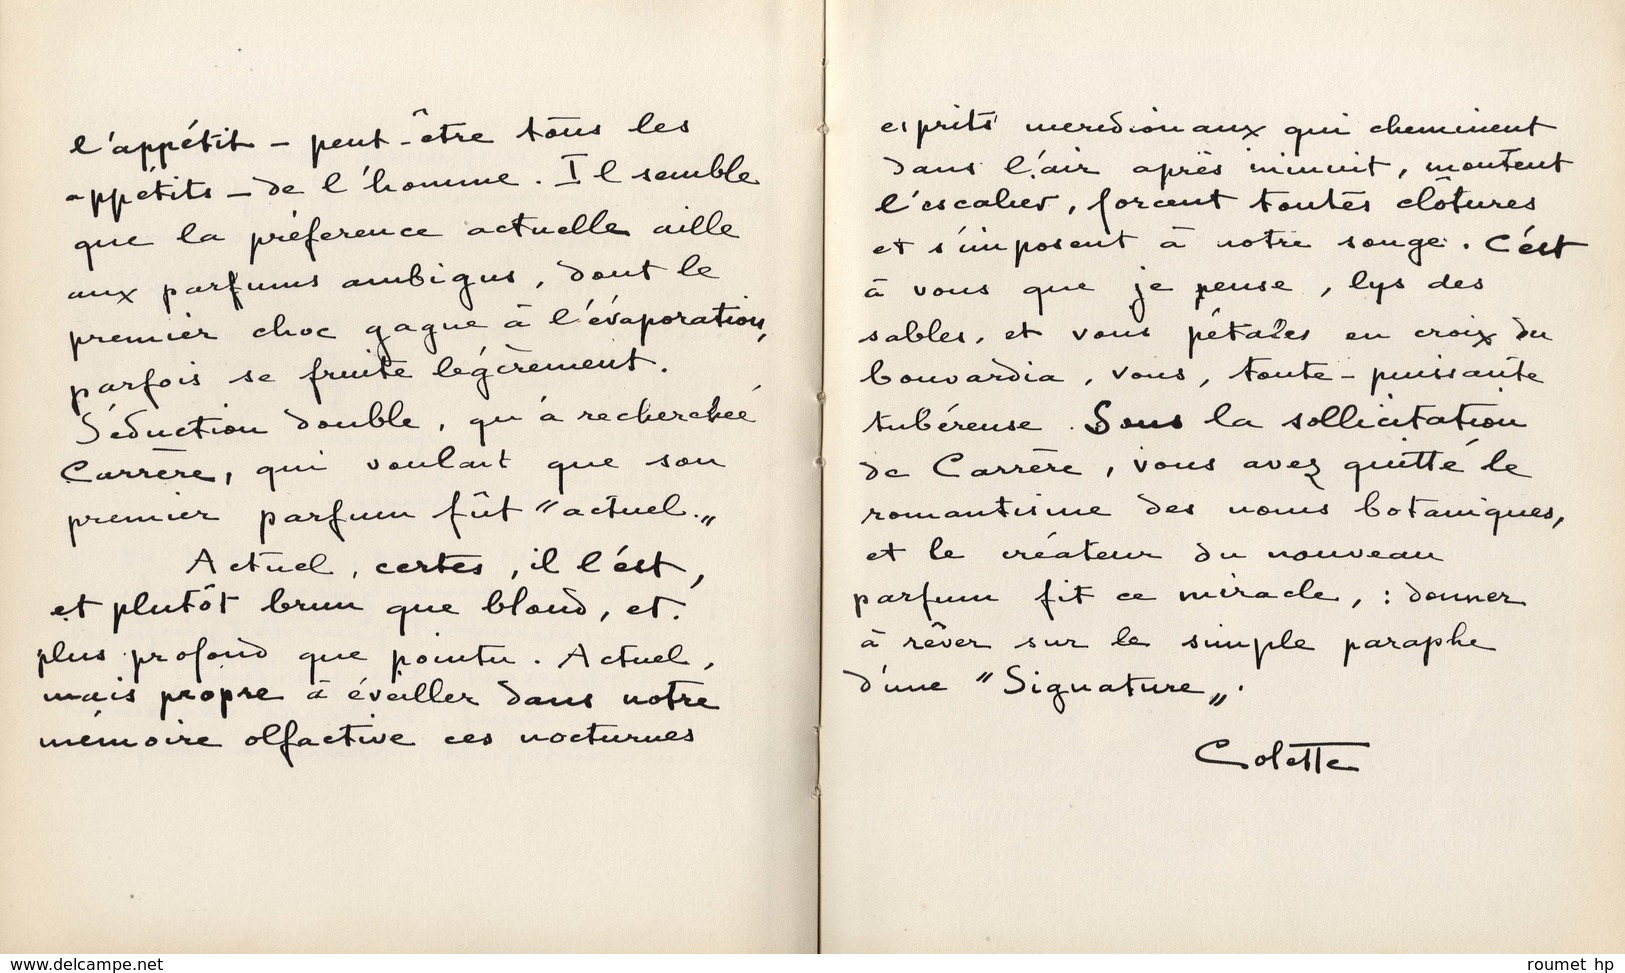 l'appétit – peut-être tous les
appétits – de l'homme. Il semble
que la préférence actuelle aille
aux parfums ambigus, dont le
premier choc gagne à l'évaporation,
parfois se fruite légèrement.
Séduction double, qu'a recherchée
Carrère, qui voulait que son
premier parfum fût "actuel."
Actuel, certes, il l'est,
et plutôt brun que blond, et
plus profond que pointu. Actuel,
mais propre à éveiller dans notre
mémoire olfactive ces nocturnes
esprits meredionaux qui cheminent
dans l'air après minuit, montent
l'escalier, forcent toutes clôtures
et s'imposent à notre songe. C'est
à vous que je pense, lys des
sables, et vous pétales en croix du
bouvardia, vous, toute-puissante
tubéreuse. Sous la sollicitation
de Carrère, vous avez quitté le
romantisme des noms botaniques,
et le créateur du nouveau
parfum fit ce miracle, : donner
à rêver sur le simple paraphe
d'une "Signature".
Colette
www.delcampe.net
roumet hp